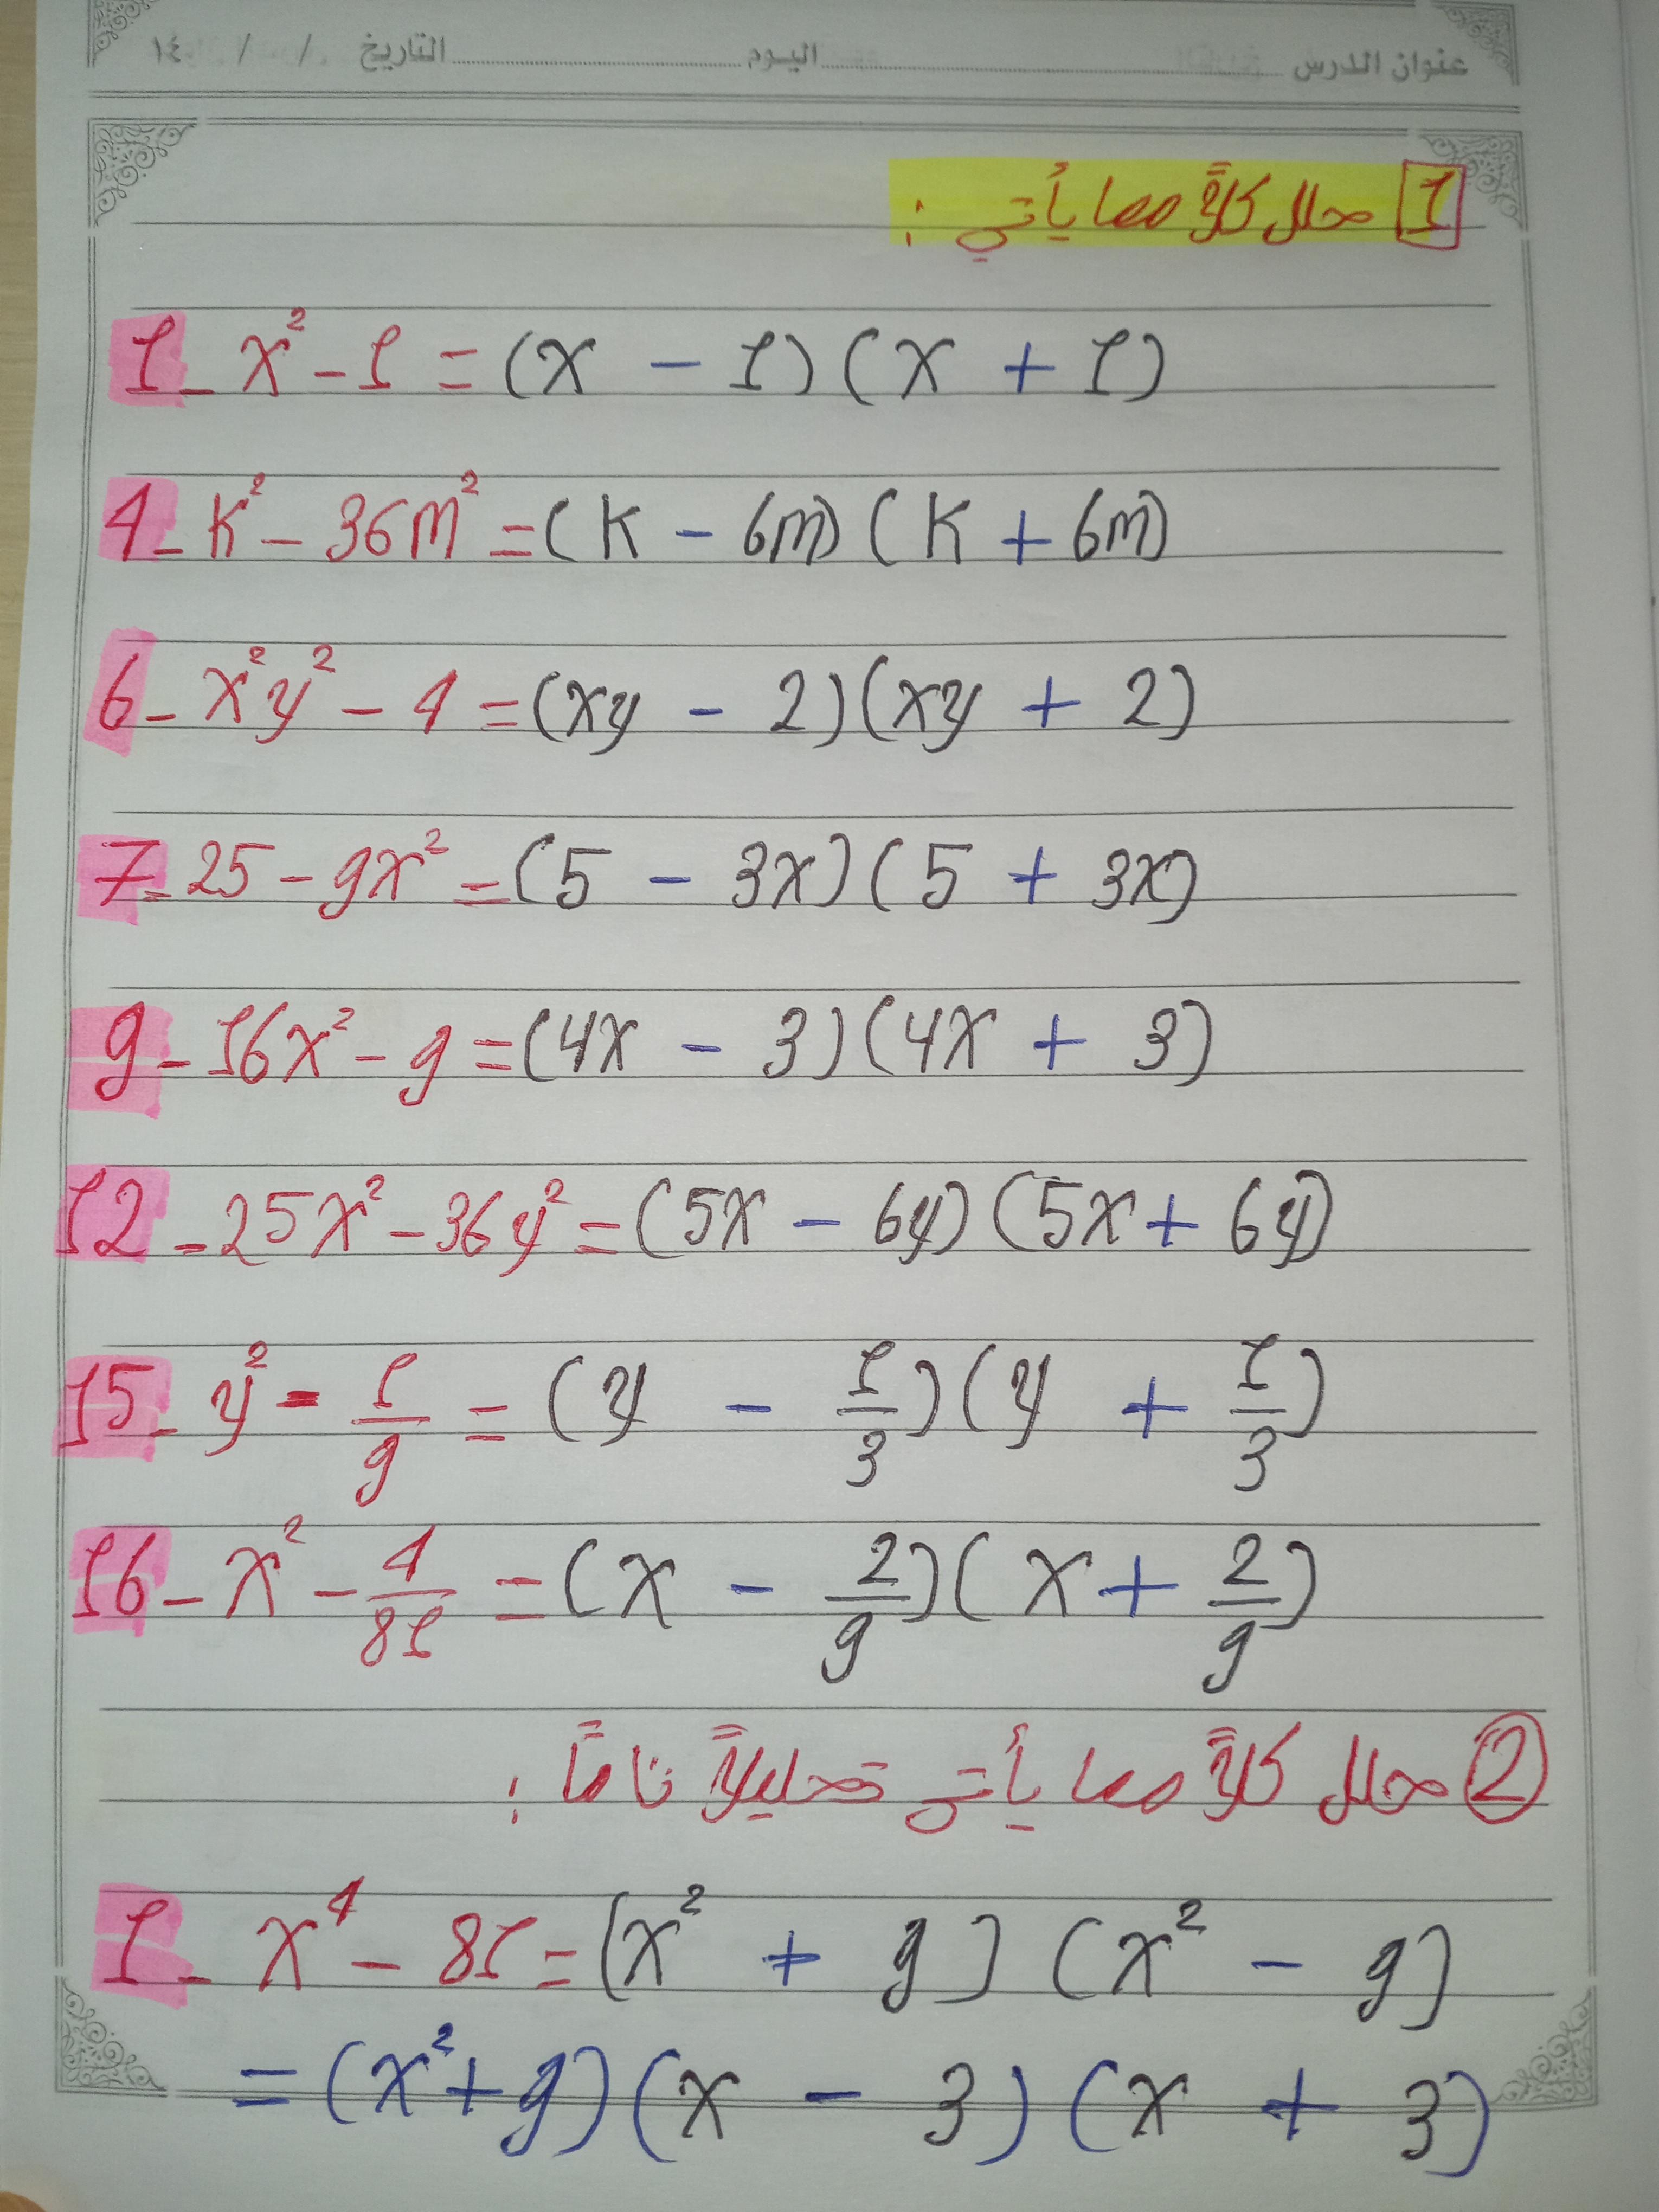 عنوان الدرس اليوم التاريخ / / ١٤
1 حلل كلاً مما يأتي :
1- x² - 1 = (x - 1)(x + 1)
4- k² - 36m² = (k - 6m)(k + 6m)
6- x²y² - 4 = (xy - 2)(xy + 2)
7- 25 - 9x² = (5 - 3x)(5 + 3x)
9- 16x² - 9 = (4x - 3)(4x + 3)
12- 25x² - 36y² = (5x - 6y)(5x + 6y)
15- y² - 1/9 = (y - 1/3)(y + 1/3)
16- x² - 4/81 = (x - 2/9)(x + 2/9)
2 حلل كلاً مما يأتي تحليلاً تاماً :
1- x⁴ - 81 = (x² + 9)(x² - 9)
= (x² + 9)(x - 3)(x + 3)